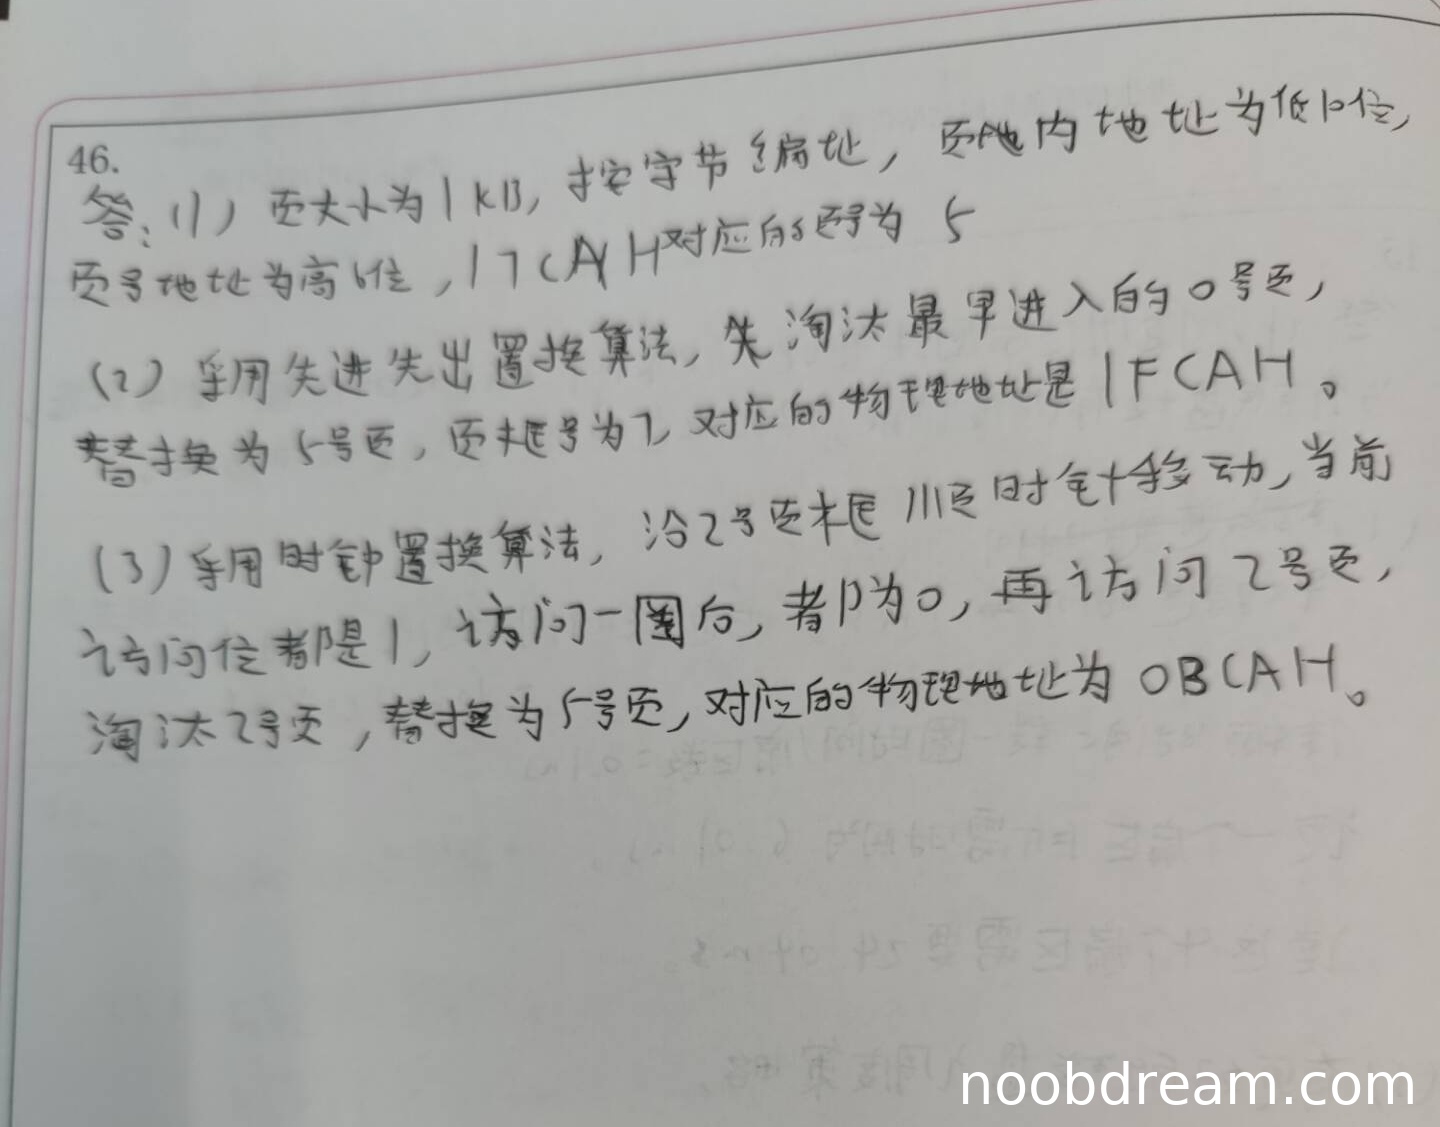 46.
答：(1) 页大小为1KB，按字节编址，页内地址为低10位，
页号地址为高6位，17CAH对应的页号为 5
(2) 采用先进先出置换算法，先淘汰最早进入的0号页，
替换为5号页，页框号为7，对应的物理地址是1FCAH。
(3) 采用时钟置换算法，沿2号页框顺时针移动，当前
访问位都是1，访问一圈后，都为0，再访问2号页，
淘汰2号页，替换为5号页，对应的物理地址为0BCAH。
noobdream.com